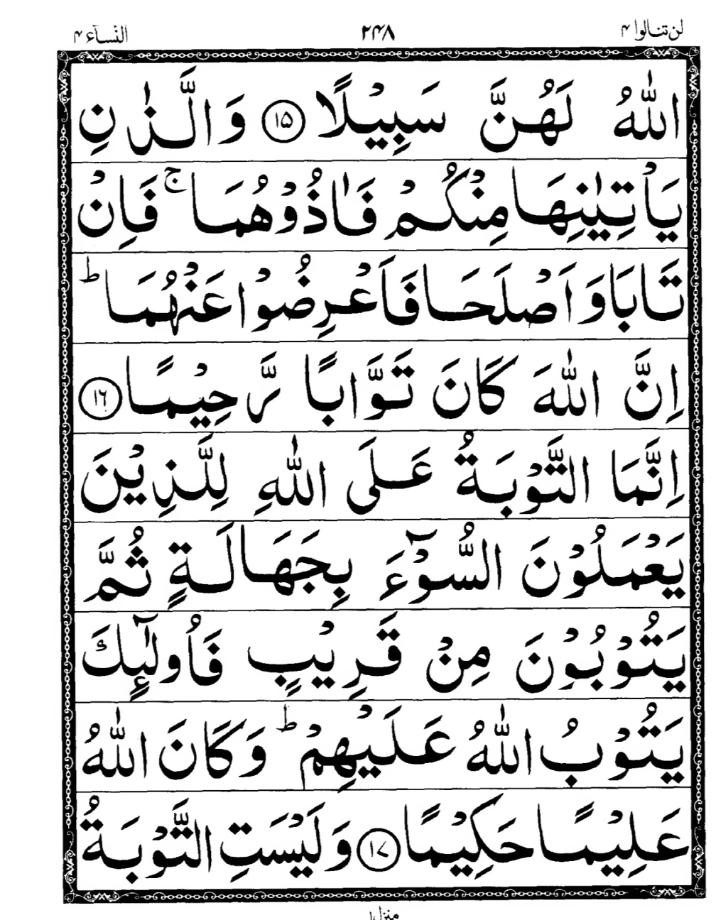 لن تنالوا ۴ ۲۴۸ النّسآء ۴
اللّٰهُ لَهُنَّ سَبِيْلًا ۝۱۵ وَالَّذٰنِ
يَاْتِيٰنِهَا مِنْكُمْ فَاٰذُوْهُمَا ۚ فَاِنْ
تَابَا وَاَصْلَحَا فَاَعْرِضُوْا عَنْهُمَا ؕ
اِنَّ اللّٰهَ كَانَ تَوَّابًا رَّحِيْمًا ۝۱۶
اِنَّمَا التَّوْبَةُ عَلَى اللّٰهِ لِلَّذِيْنَ
يَعْمَلُوْنَ السُّوْٓءَ بِجَهَالَةٍ ثُمَّ
يَتُوْبُوْنَ مِنْ قَرِيْبٍ فَاُولٰٓئِكَ
يَتُوْبُ اللّٰهُ عَلَيْهِمْ ؕ وَكَانَ اللّٰهُ
عَلِيْمًا حَكِيْمًا ۝۱۷ وَلَيْسَتِ التَّوْبَةُ
منزل ۱